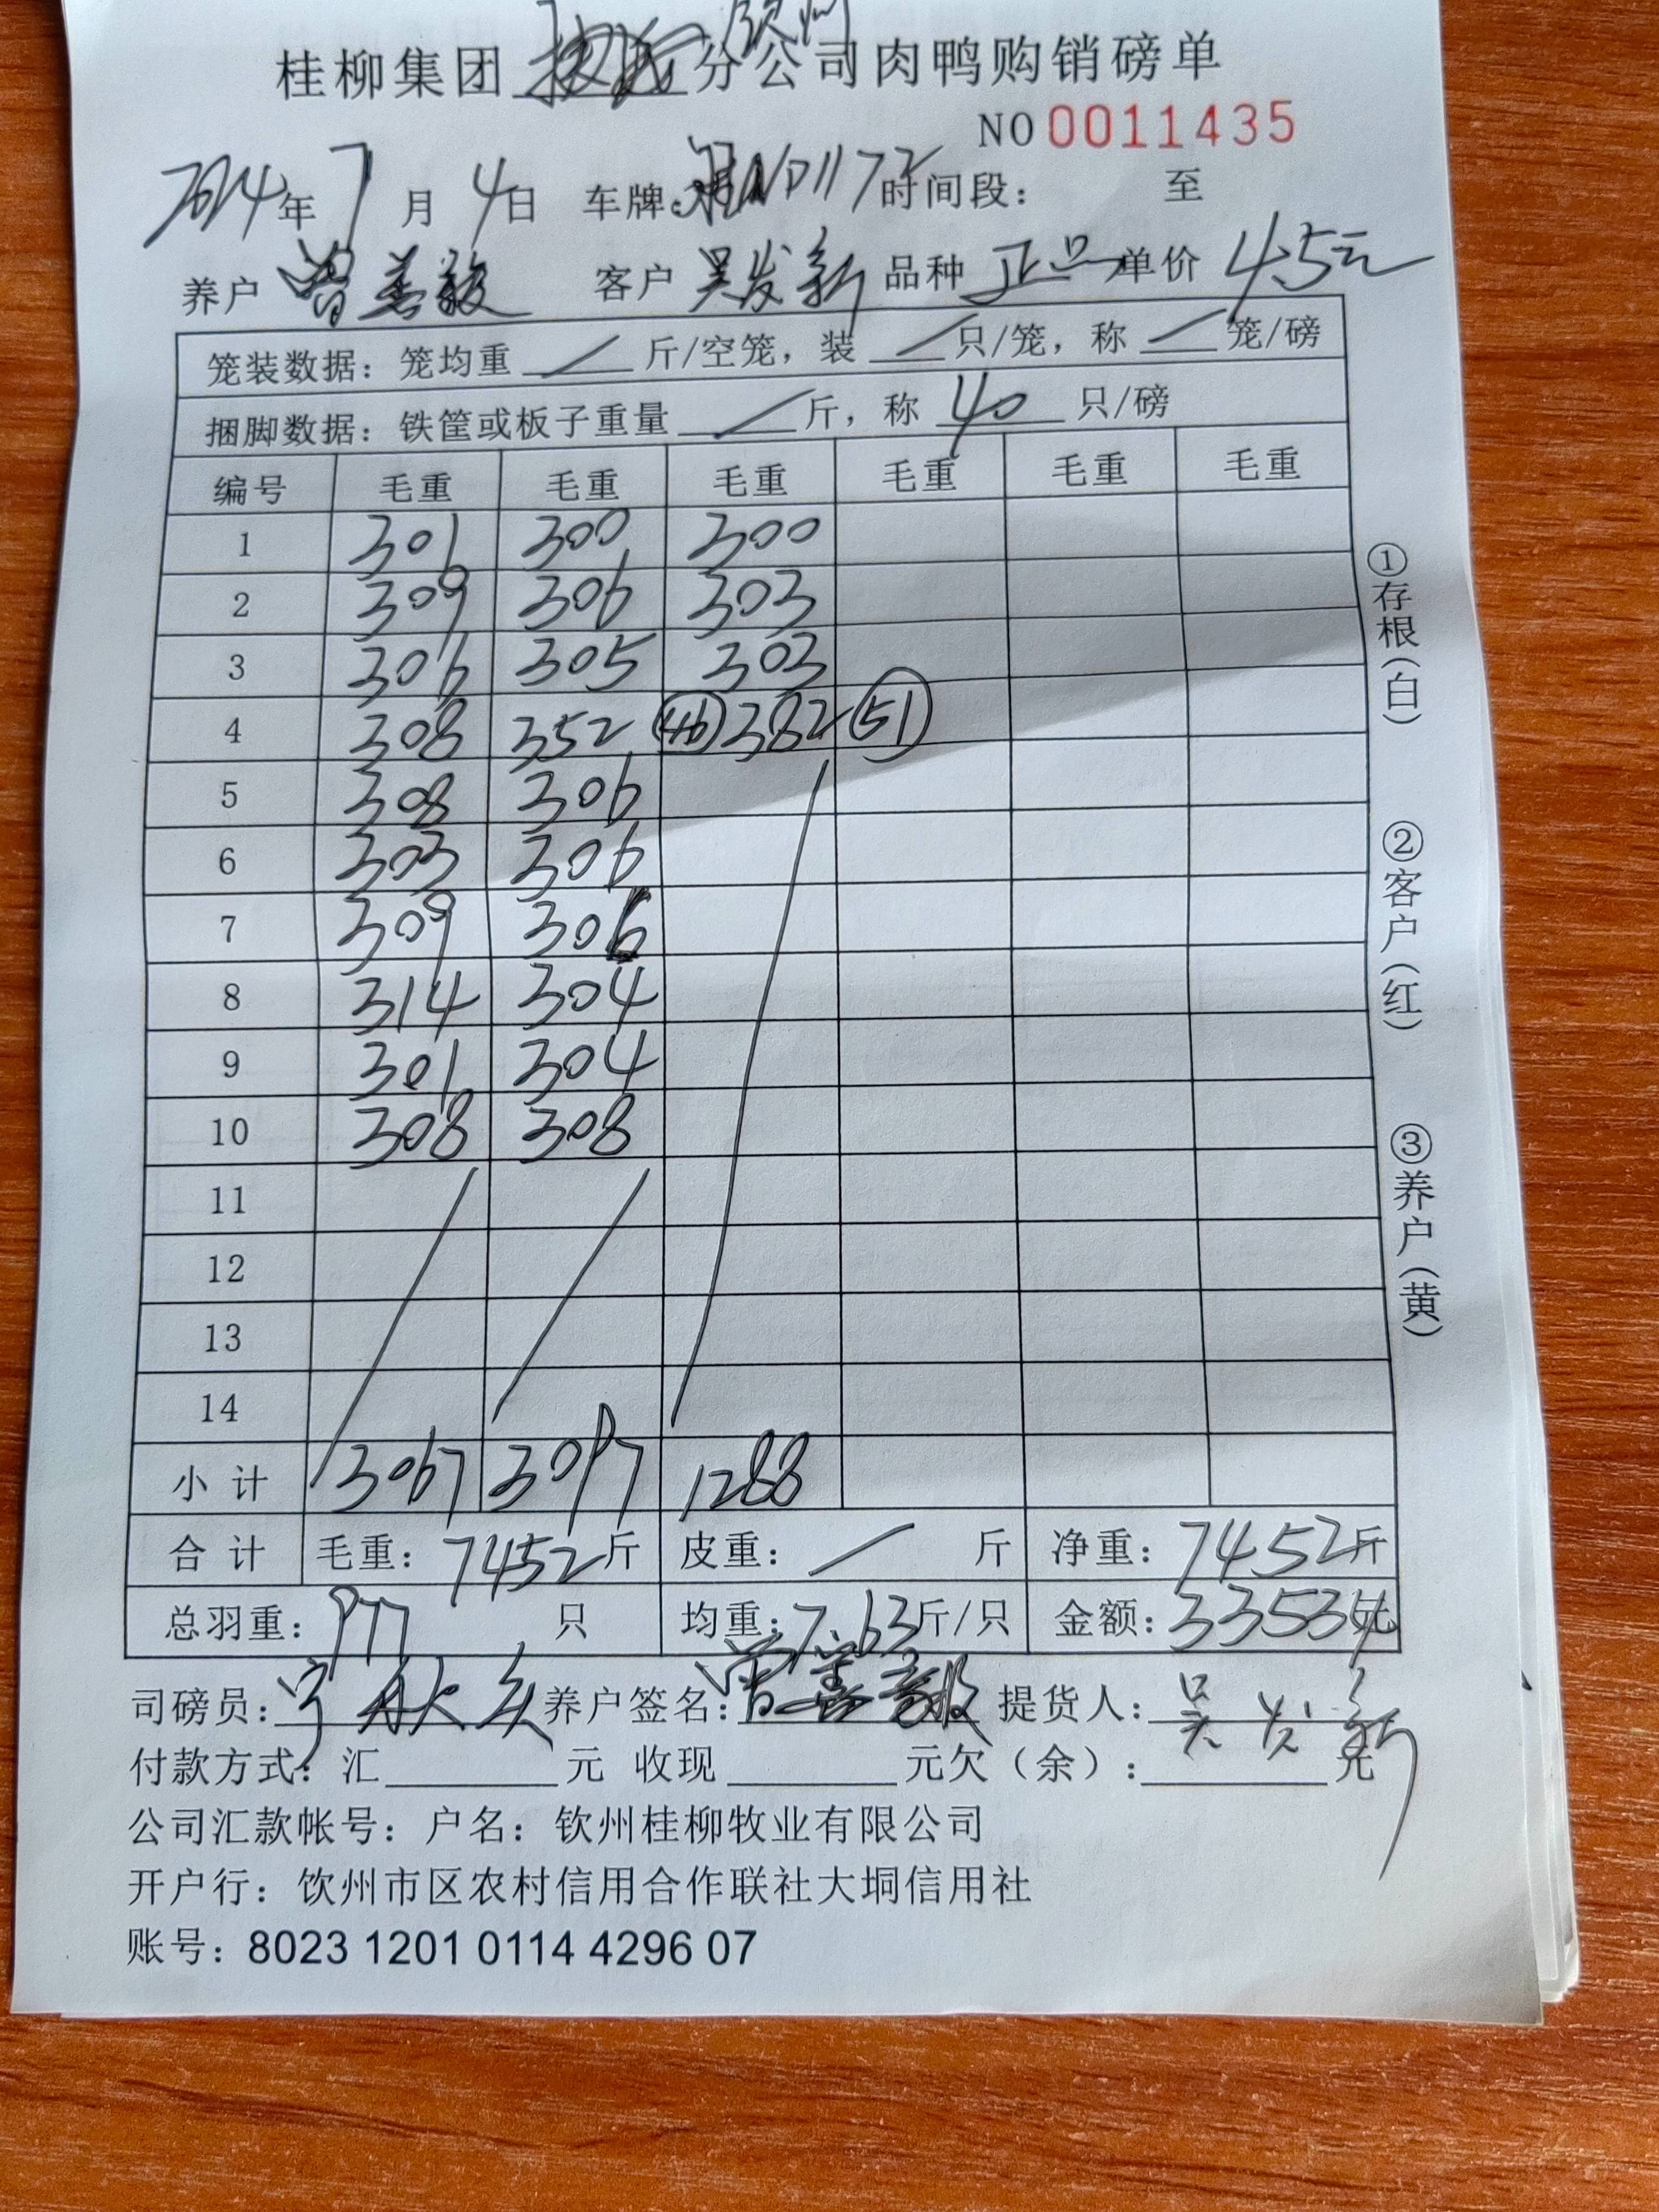 钦州
桂柳集团 分公司肉鸭购销磅单
NO 0011435
2024年 7月 4日 车牌: N01172 时间段: 至
养户 曾善毅 客户 吴发新 品种 正品 单价 4.5元
笼装数据：笼均重 / 斤/空笼，装 / 只/笼，称 / 笼/磅
捆脚数据：铁筐或板子重量 / 斤，称 40 只/磅
编号 毛重 毛重 毛重 毛重 毛重 毛重
1 301 300 300
2 309 306 303
3 306 305 303
4 308 352 (46) 382 (51)
5 308 306
6 303 306
7 309 306
8 314 304
9 301 304
10 308 308
11
12
13
14
小计 3067 3097 1288
合计 毛重：7452斤 皮重：/ 斤 净重：7452斤
总羽重：977 只 均重：7.63斤/只 金额：33534元
司磅员： 养户签名：曾善毅 提货人：吴发新
付款方式：汇 元 收现 元欠（余）： 元
公司汇款帐号：户名：钦州桂柳牧业有限公司
开户行：饮州市区农村信用合作联社大垌信用社
账号：8023 1201 0114 4296 07
①存根(白)
②客户(红)
③养户(黄)